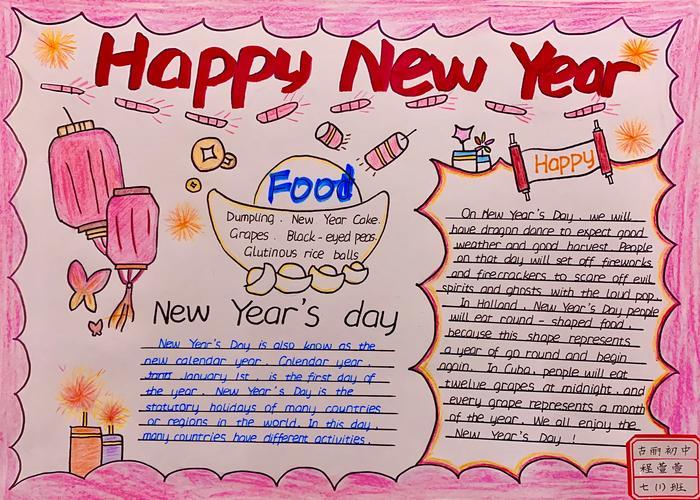 Happy New Year
Food
Dumpling. New Year Cake.
Grapes. Black-eyed peas.
Glutinous rice balls
New Year's day
New Year's Day is also know as the
new calendar year. Calendar year
January 1st. is the first day of
the year. New Year's Day is the
statutory holidays of many countries
or regions in the world. In this day,
many countries have different activities.
Happy
On New Year's Day, we will
have dragon dance to expect good
weather and good harvest. People
on that day will set off fireworks
and firecrackers to scare off evil
spirits and ghosts with the loud pop.
In Holland, New Year's Day people
will eat round-shaped food,
because this shape represents
a year of go round and begin
again. In Cuba, people will eat
twelve grapes at midnight, and
every grape represents a month
of the year. We all enjoy the
New Year's Day!
古丽初中
程萱萱
七(1)班